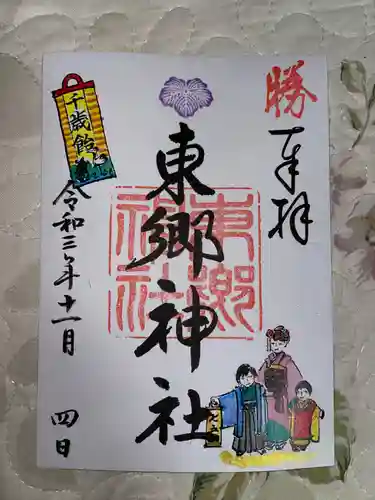 勝
奉拝
東郷神社
東郷神社
千歳飴
令和三年十一月 四日